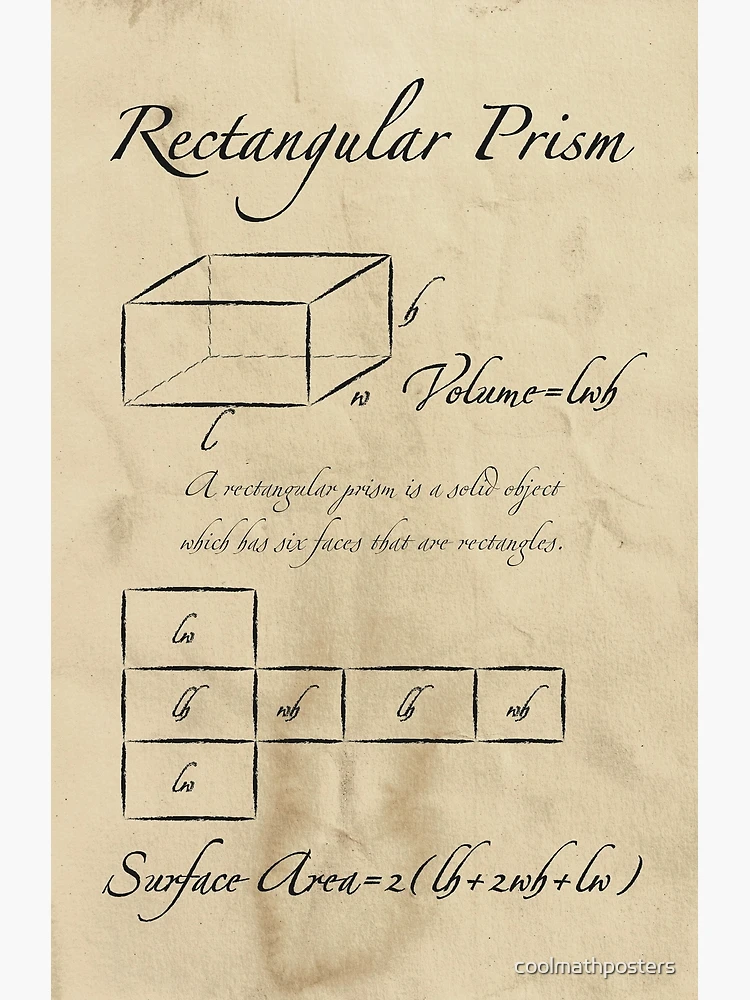 Rectangular Prism
h
w
Volume=lwh
l
A rectangular prism is a solid object
which has six faces that are rectangles.
lw
lh wh lh wh
lw
Surface Area=2(lh+2wh+lw)
coolmathposters